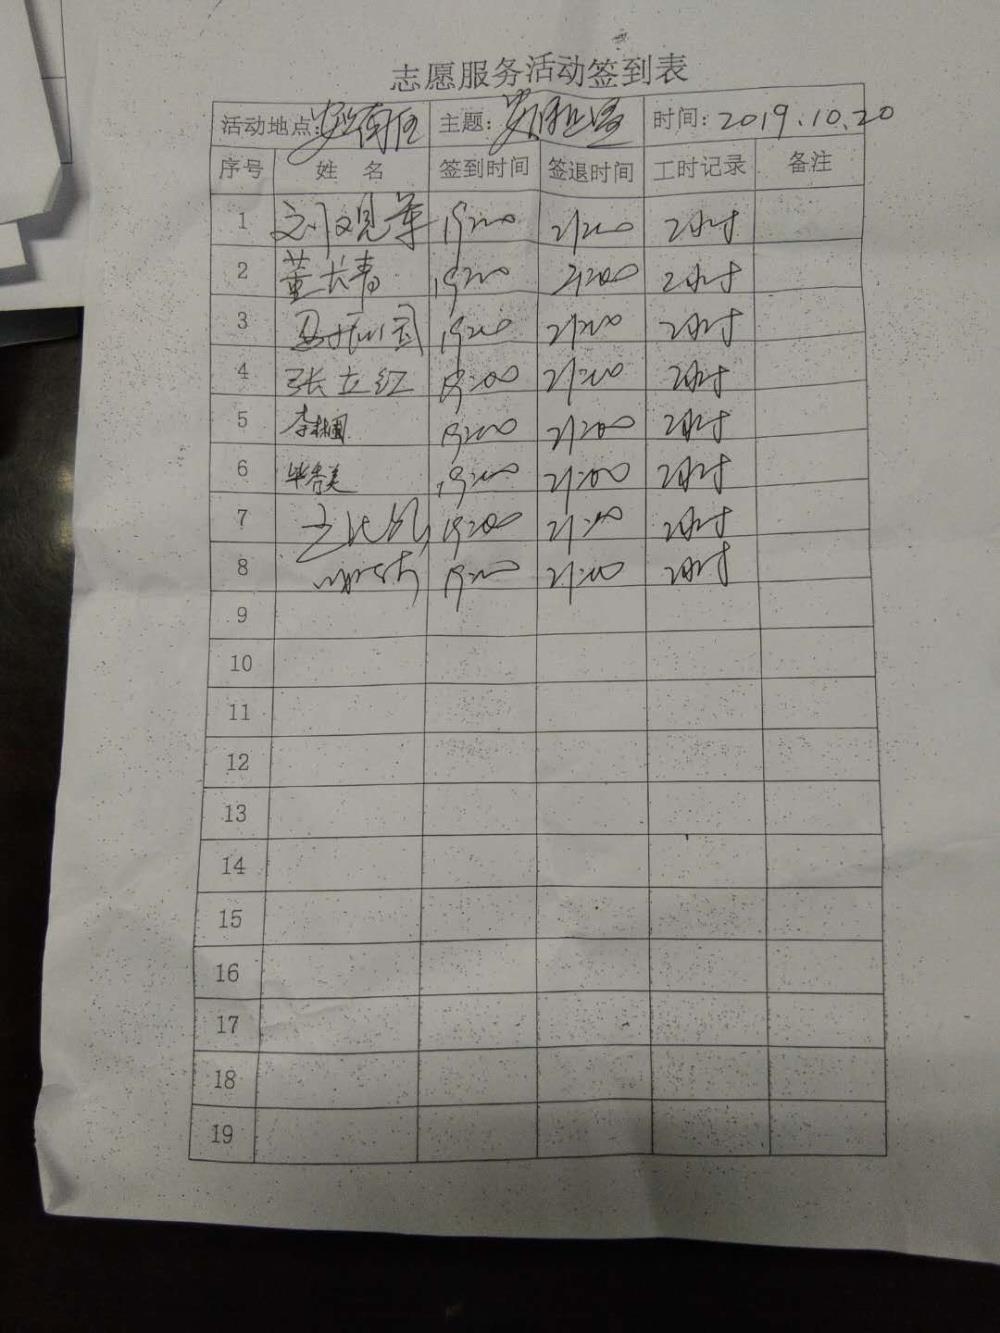 志愿服务活动签到表
活动地点: 主题: 时间: 2019.10.20
序号 姓 名 签到时间 签退时间 工时记录 备注
1 19:00 21:00 2小时
2 董长青 19:00 21:00 2小时
3 19:00 21:00 2小时
4 张立红 19:00 21:00 2小时
5 19:00 21:00 2小时
6 毕春美 19:00 21:00 2小时
7 19:00 21:00 2小时
8 19:00 21:00 2小时
9
10
11
12
13
14
15
16
17
18
19